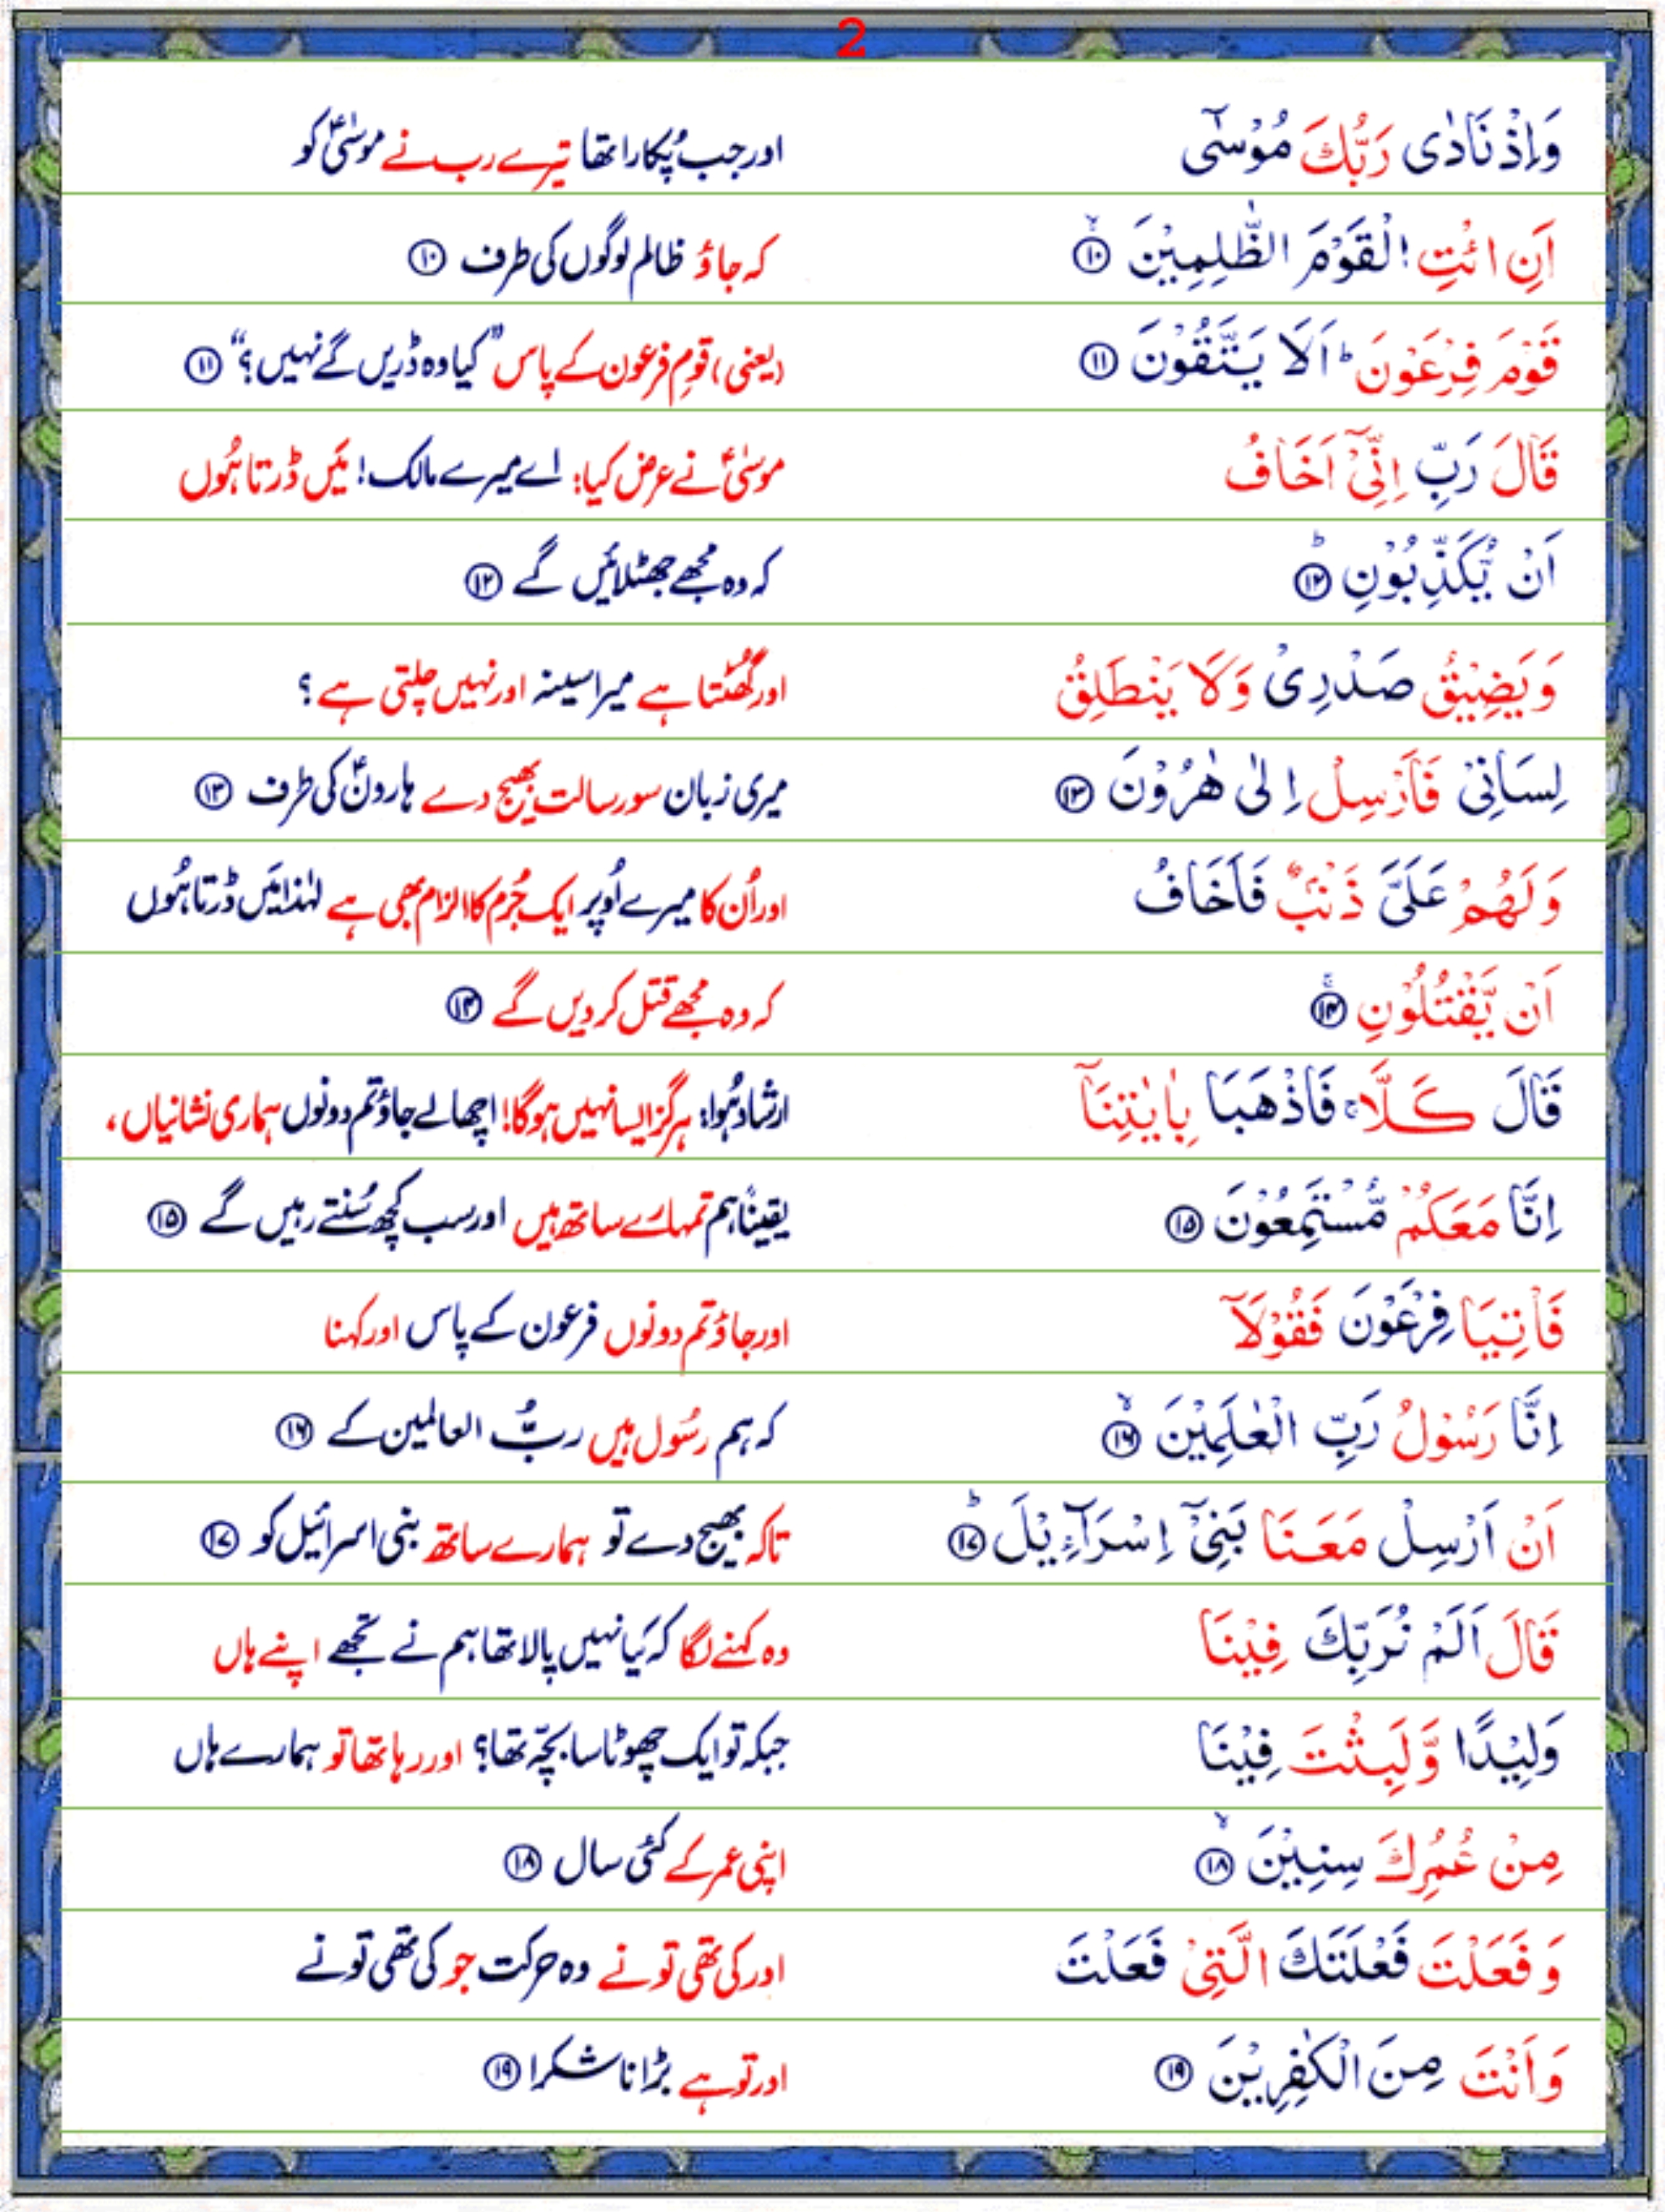 2
وَاِذْ نَادٰى رَبُّكَ مُوْسٰٓى
اور جب پُکارا تھا تیرے رب نے موسٰیؑ کو
اَنِ ائْتِ الْقَوْمَ الظّٰلِمِيْنَ ۙ⑩
کہ جاؤ ظالم لوگوں کی طرف ⑩
قَوْمَ فِرْعَوْنَ ؕ اَلَا يَتَّقُوْنَ ⑪
(یعنی) قومِ فرعون کے پاس "کیا وہ ڈریں گے نہیں؟" ⑪
قَالَ رَبِّ اِنِّىْۤ اَخَافُ
موسٰیؑ نے عرض کیا: اے میرے مالک! مَیں ڈرتا ہُوں
اَنْ يُّكَذِّبُوْنِ ؕ⑫
کہ وہ مجھے جھٹلائیں گے ⑫
وَيَضِيْقُ صَدْرِىْ وَلَا يَنْطَلِقُ
اور گھُٹتا ہے میرا سینہ اور نہیں چلتی ہے ؟
لِسَانِىْ فَاَرْسِلْ اِلٰى هٰرُوْنَ ⑬
میری زبان سو رسالت بھیج دے ہارونؑ کی طرف ⑬
وَلَهُمْ عَلَىَّ ذَنْۢبٌ فَاَخَافُ
اور اُن کا میرے اُوپر ایک جُرم کا الزام بھی ہے لہٰذا مَیں ڈرتا ہُوں
اَنْ يَّقْتُلُوْنِ ۚ⑭
کہ وہ مجھے قتل کر دیں گے ⑭
قَالَ كَلَّا ۚ فَاذْهَبَا بِاٰيٰتِنَاۤ
ارشاد ہُوا: ہرگز ایسا نہیں ہوگا! اچھا لے جاؤ تم دونوں ہماری نشانیاں ،
اِنَّا مَعَكُمْ مُّسْتَمِعُوْنَ ⑮
یقیناً ہم تمہارے ساتھ ہیں اور سب کچھ سُنتے رہیں گے ⑮
فَاْتِيَا فِرْعَوْنَ فَقُوْلَاۤ
اور جاؤ تم دونوں فرعون کے پاس اور کہنا
اِنَّا رَسُوْلُ رَبِّ الْعٰلَمِيْنَ ۙ⑯
کہ ہم رسُول ہیں ربُّ العالمین کے ⑯
اَنْ اَرْسِلْ مَعَنَا بَنِىْۤ اِسْرَآءِيْلَ ؕ⑰
تاکہ بھیج دے تو ہمارے ساتھ بنی اسرائیل کو ⑰
قَالَ اَلَمْ نُرَبِّكَ فِيْنَا
وہ کہنے لگا کہ کیا نہیں پالا تھا ہم نے تجھے اپنے ہاں
وَلِيْدًا وَّلَبِثْتَ فِيْنَا
جبکہ تو ایک چھوٹا سا بچّہ تھا؟ اور رہا تھا تو ہمارے ہاں
مِنْ عُمُرِكَ سِنِيْنَ ۙ⑱
اپنی عمر کے کئی سال ⑱
وَفَعَلْتَ فَعْلَتَكَ الَّتِىْ فَعَلْتَ
اور کی تھی تو نے وہ حرکت جو کی تھی تو نے
وَاَنْتَ مِنَ الْكٰفِرِيْنَ ⑲
اور تو ہے بڑا ناشکرا ⑲